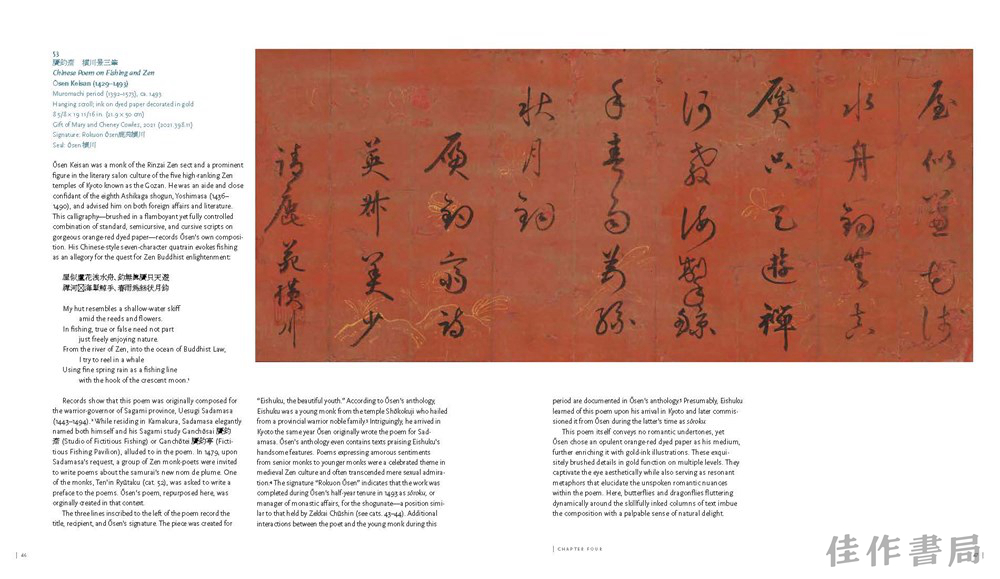 53
贋釣斎 横川景三筆
Chinese Poem on Fishing and Zen
Ōsen Keisan (1429–1493)
Muromachi period (1392–1573), ca. 1493
Hanging scroll; ink on dyed paper decorated in gold
8 5/8 × 19 11/16 in. (21.9 × 50 cm)
Gift of Mary and Cheney Cowles, 2021 (2021.398.11)
Signature: Rokuon Ōsen鹿苑横川
Seal: Ōsen 横川
Ōsen Keisan was a monk of the Rinzai Zen sect and a prominent
figure in the literary salon culture of the five high ranking Zen
temples of Kyoto known as the Gozan. He was an aide and close
confidant of the eighth Ashikaga shogun, Yoshimasa (1436–
1490), and advised him on both foreign affairs and literature.
This calligraphy—brushed in a flamboyant yet fully controlled
combination of standard, semicursive, and cursive scripts on
gorgeous orange-red dyed paper—records Ōsen's own composi-
tion. His Chinese-style seven-character quatrain evokes fishing
as an allegory for the quest for Zen Buddhist enlightenment:
屋似蘆花浅水舟、釣無眞贋只天遊
禅河 海掣鯨手、春雨為絲状月鈎
My hut resembles a shallow-water skiff
amid the reeds and flowers.
In fishing, true or false need not part
just freely enjoying nature.
From the river of Zen, into the ocean of Buddhist Law,
I try to reel in a whale
Using fine spring rain as a fishing line
with the hook of the crescent moon.¹
Records show that this poem was originally composed for
the warrior-governor of Sagami province, Uesugi Sadamasa
(1443–1494).² While residing in Kamakura, Sadamasa elegantly
named both himself and his Sagami study Ganchōsai 贋釣
斎 (Studio of Fictitious Fishing) or Ganchōtei 贋釣亭 (Ficti-
tious Fishing Pavilion), alluded to in the poem. In 1479, upon
Sadamasa's request, a group of Zen monk-poets were invited
to write poems about the samurai's new nom de plume. One
of the monks, Ten'in Ryūtaku (cat. 52), was asked to write a
preface to the poems. Ōsen's poem, repurposed here, was
orginally created in that context.
The three lines inscribed to the left of the poem record the
title, recipient, and Ōsen's signature. The piece was created for
| 46
屋似蘆花浅
水舟釣無真
贋只天遊禅
河教海掣鯨
手春雨為絲
状月鈎
贋釣斎詩
英叔美少
請鹿苑横川
“Eishuku, the beautiful youth.” According to Ōsen's anthology,
Eishuku was a young monk from the temple Shōkokuji who hailed
from a provincial warrior noble family.³ Intriguingly, he arrived in
Kyoto the same year Ōsen originally wrote the poem for Sad-
amasa. Ōsen's anthology even contains texts praising Eishuku's
handsome features. Poems expressing amorous sentiments
from senior monks to younger monks were a celebrated theme in
medieval Zen culture and often transcended mere sexual admira-
tion.⁴ The signature “Rokuon Ōsen” indicates that the work was
completed during Ōsen's half-year tenure in 1493 as sōroku, or
manager of monastic affairs, for the shogunate—a position simi-
lar to that held by Zekkai Chūshin (see cats. 43–44). Additional
interactions between the poet and the young monk during this
period are documented in Ōsen's anthology.⁵ Presumably, Eishuku
learned of this poem upon his arrival in Kyoto and later commis-
sioned it from Ōsen during the latter's time as sōroku.
This poem itself conveys no romantic undertones, yet
Ōsen chose an opulent orange-red dyed paper as his medium,
further enriching it with gold-ink illustrations. These exqui-
sitely brushed details in gold function on multiple levels. They
captivate the eye aesthetically while also serving as resonant
metaphors that elucidate the unspoken romantic nuances
within the poem. Here, butterflies and dragonflies fluttering
dynamically around the skillfully inked columns of text imbue
the composition with a palpable sense of natural delight.
| CHAPTER FOUR
佳作書局